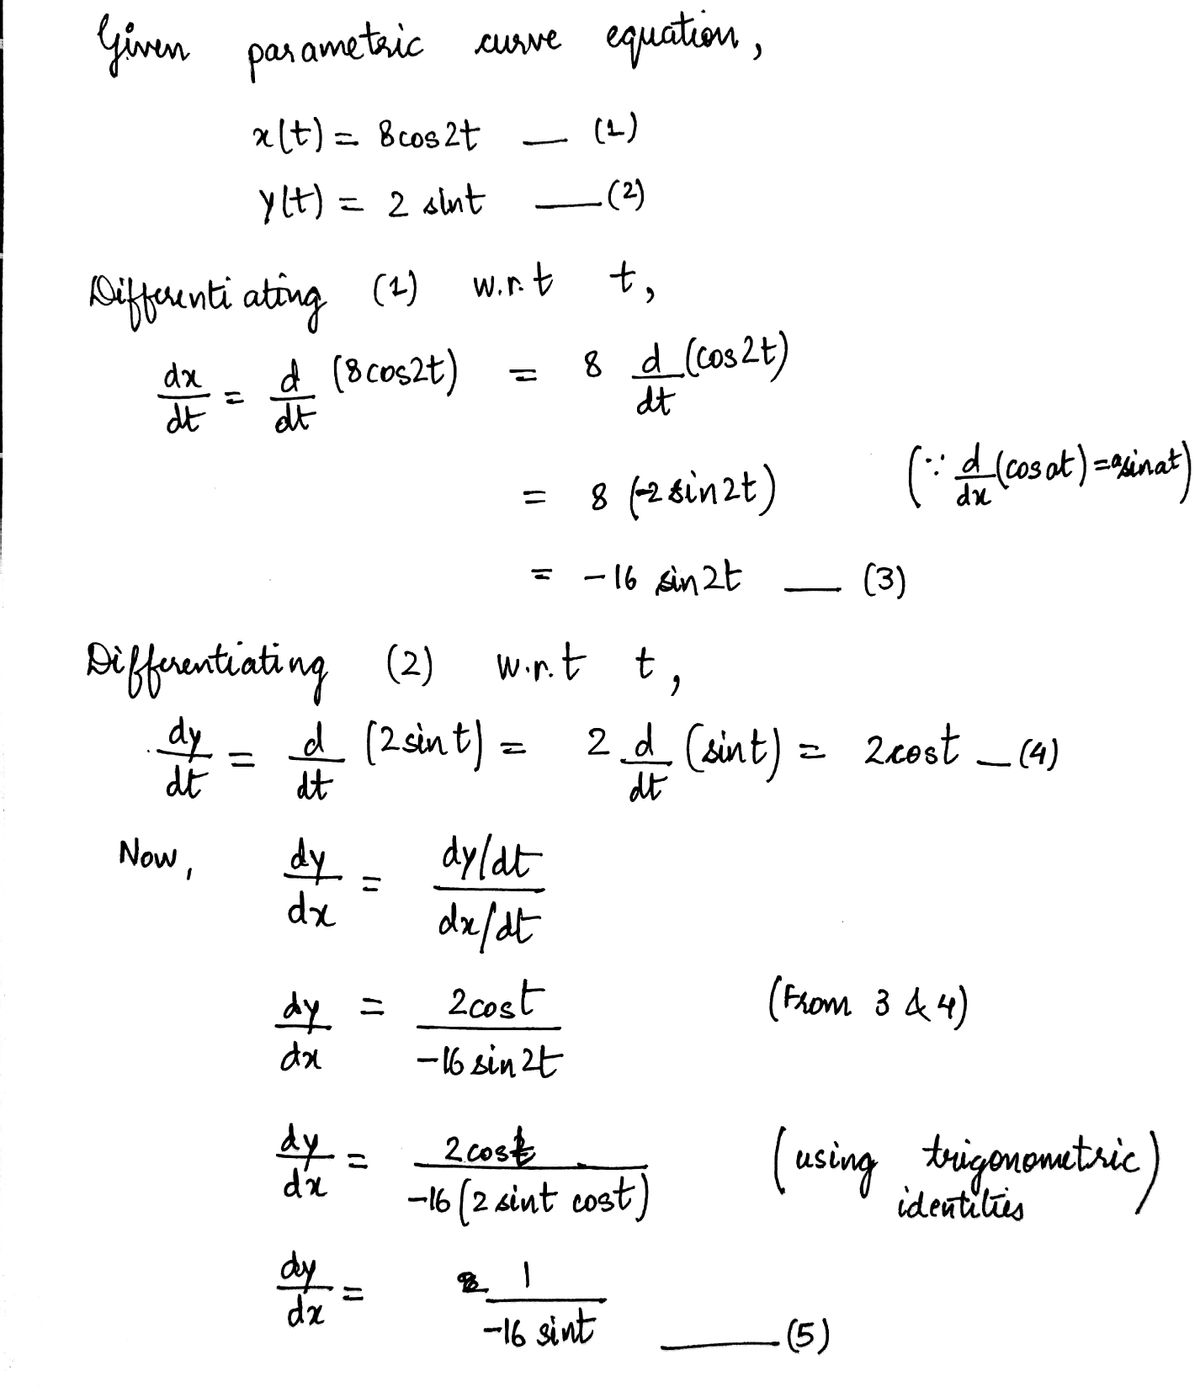 Given parametric curve equation,
x(t) = 8cos2t — (1)
y(t) = 2 sint — (2)
Differentiating (1) w.r.t t,
dx/dt = d/dt (8cos2t) = 8 d/dt (cos2t)
= 8 (-2 sin2t) (∵ d/dx (cosat) = asinat)
= -16 sin2t — (3)
Differentiating (2) w.r.t t,
dy/dt = d/dt (2sint) = 2 d/dt (sint) = 2cost — (4)
Now, dy/dx = (dy/dt)/(dx/dt)
dy/dx = 2cost/(-16 sin2t) (From 3 & 4)
dy/dx = 2cost/(-16(2 sint cost)) (using trigonometric identities)
dy/dx = 1/(-16 sint) — (5)